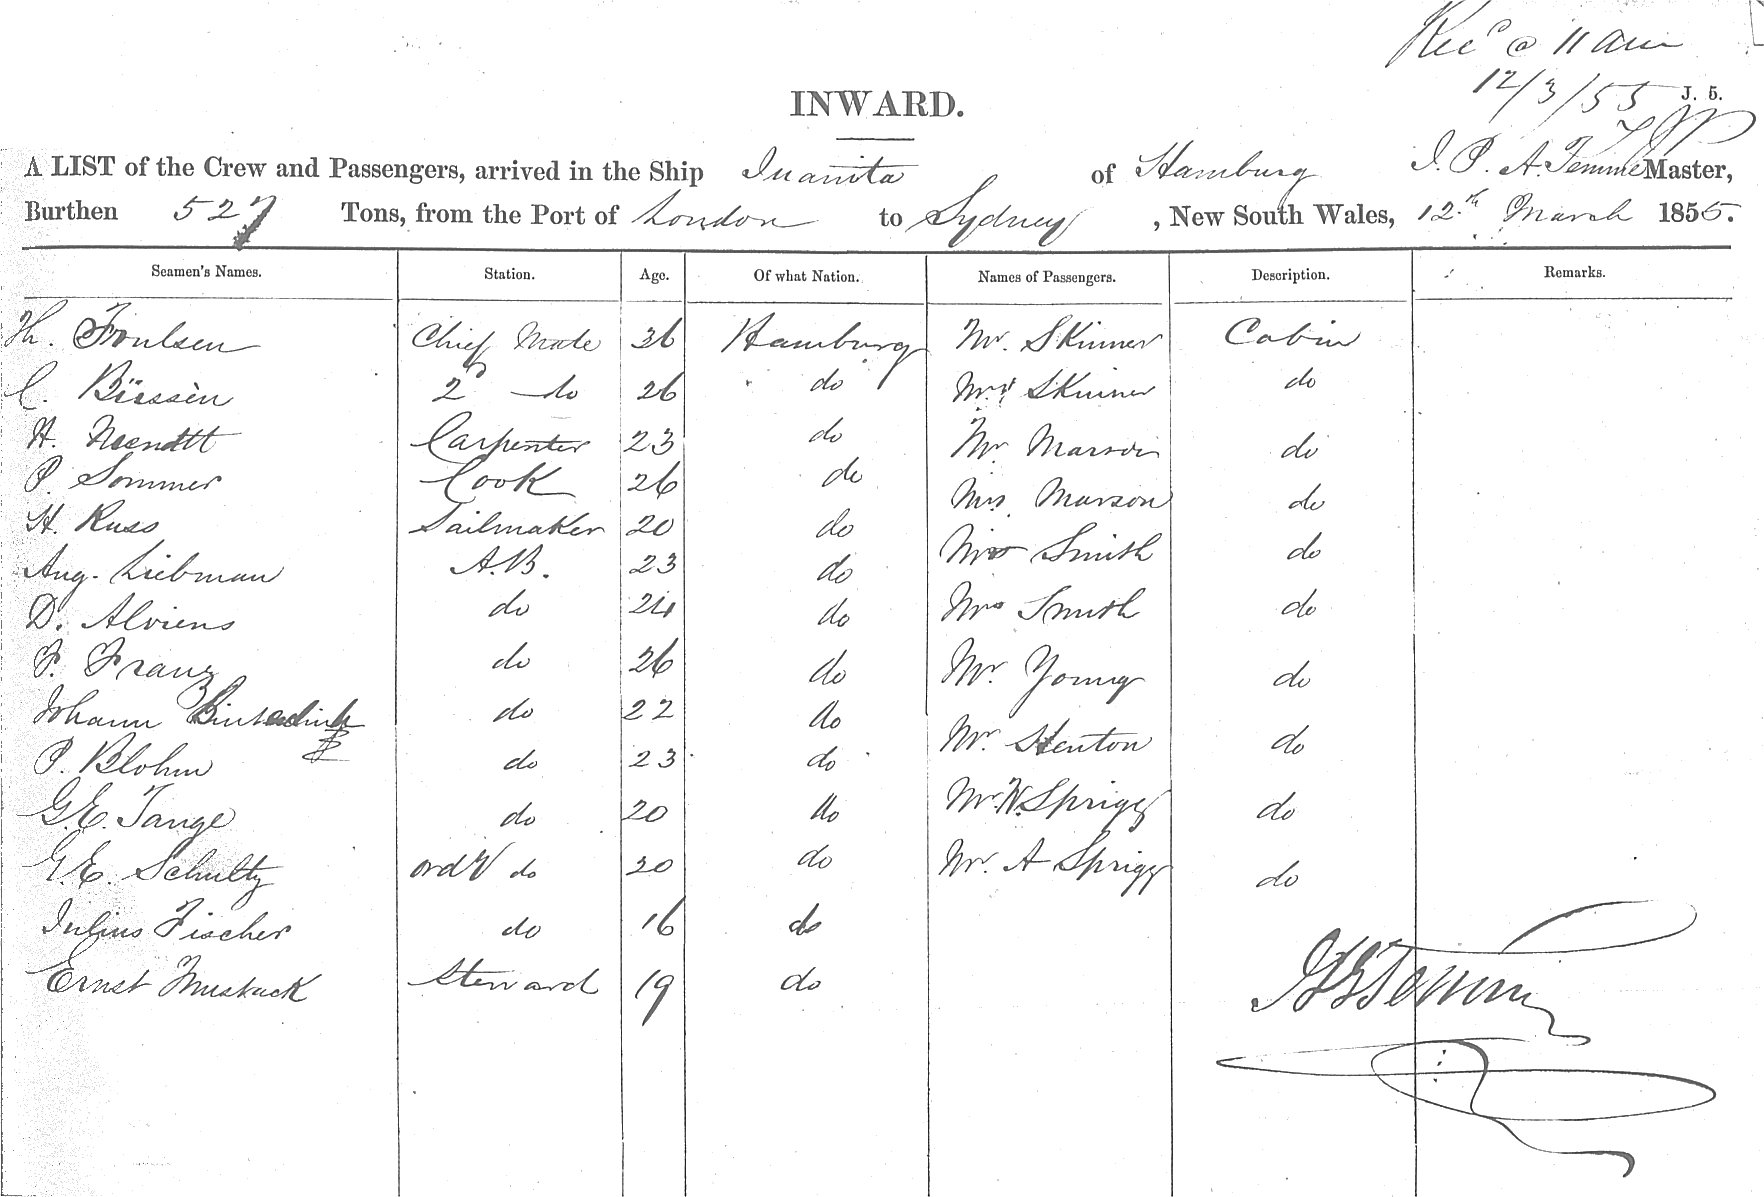 Rec'd @ 11 am
12/3/55
J. 5.
INWARD.
A LIST of the Crew and Passengers, arrived in the Ship Juanita of Hamburg J. P. A. Temme Master,
Burthen 527 Tons, from the Port of London to Sydney, New South Wales, 12th March 1855.
Seamen's Names. Station. Age. Of what Nation. Names of Passengers. Description. Remarks.
Th. Foulsen Chief Mate 36 Hamburg Mr. Skinner Cabin
C. Büssen 2d do 26 do Mrs Skinner do
H. Carpenter 23 do Mr Marson do
P. Sommer Cook 26 do Mrs Marson do
H. Russ Sailmaker 20 do Smith do
Aug. Liebman A.B. 23 do Smith do
D. Alviens do 24 do Mr. Young do
F. Franz do 26 do Mr. Stenton do
Johann do 22 do Mr. W. Sprigg do
P. Blohm do 23 do Mr. A Sprigg do
G.E. Tange do 20 do
G.E. Schultz ordy do 20 do
Julius Fischer do 16 do
Ernst Muskuck Steward 19 do